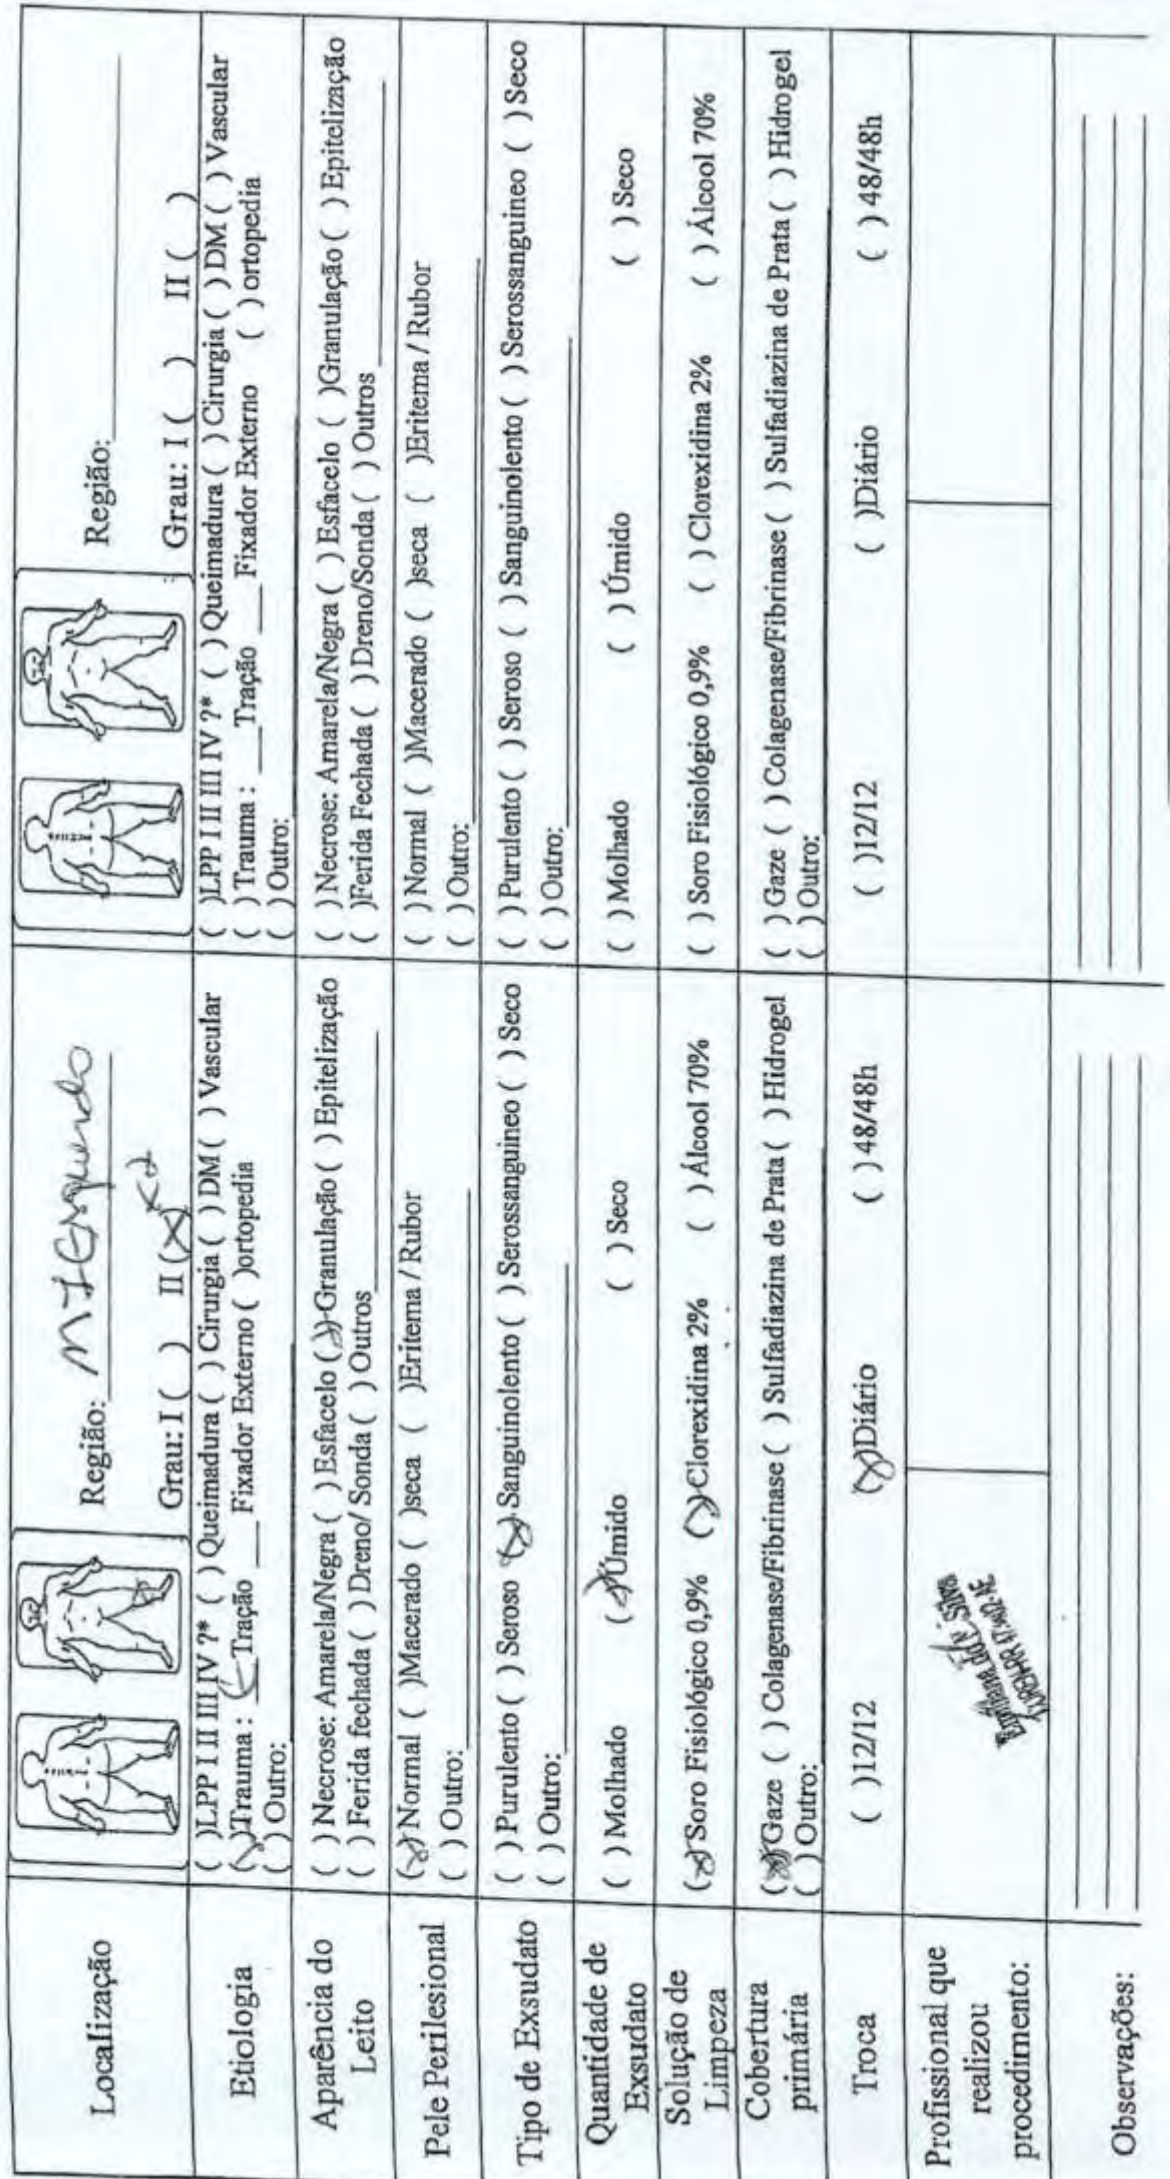 Localização
Região: MIEsquerdo
Grau: I ( ) II (X) x2
Região:____________
Grau: I ( ) II ( )
Etiologia
( )LPP I II III IV ?* ( ) Queimadura ( ) Cirurgia ( ) DM ( ) Vascular
(X)Trauma : ___Tração ___Fixador Externo ( )ortopedia
( ) Outro:
( )LPP I II III IV ?* ( ) Queimadura ( ) Cirurgia ( ) DM ( ) Vascular
( ) Trauma : ___Tração ___Fixador Externo ( ) ortopedia
( ) Outro:
Aparência do
Leito
( ) Necrose: Amarela/Negra ( ) Esfacelo (X)Granulação ( ) Epitelização
( ) Ferida fechada ( ) Dreno/ Sonda ( ) Outros____________
( ) Necrose: Amarela/Negra ( ) Esfacelo ( )Granulação ( ) Epitelização
( )Ferida Fechada ( ) Dreno/Sonda ( ) Outros____________
Pele Perilesional
(X)Normal ( )Macerado ( )seca ( )Eritema / Rubor
( ) Outro:____________
( ) Normal ( )Macerado ( )seca ( )Eritema / Rubor
( ) Outro:____________
Tipo de Exsudato
( ) Purulento ( ) Seroso (X)Sanguinolento ( ) Serossanguineo ( ) Seco
( ) Outro:____________
( ) Purulento ( ) Seroso ( ) Sanguinolento ( ) Serossanguineo ( ) Seco
( ) Outro:____________
Quantidade de
Exsudato
( ) Molhado (X)Úmido ( ) Seco
( ) Molhado ( ) Úmido ( ) Seco
Solução de
Limpeza
(X)Soro Fisiológico 0,9% (X)Clorexidina 2% ( ) Álcool 70%
( ) Soro Fisiológico 0,9% ( ) Clorexidina 2% ( ) Álcool 70%
Cobertura
primária
(X)Gaze ( ) Colagenase/Fibrinase ( ) Sulfadiazina de Prata ( ) Hidrogel
( ) Outro:
( ) Gaze ( ) Colagenase/Fibrinase ( ) Sulfadiazina de Prata ( ) Hidrogel
( ) Outro:
Troca
( )12/12 (X)Diário ( ) 48/48h
( )12/12 ( )Diário ( ) 48/48h
Profissional que
realizou
procedimento:
Observações: